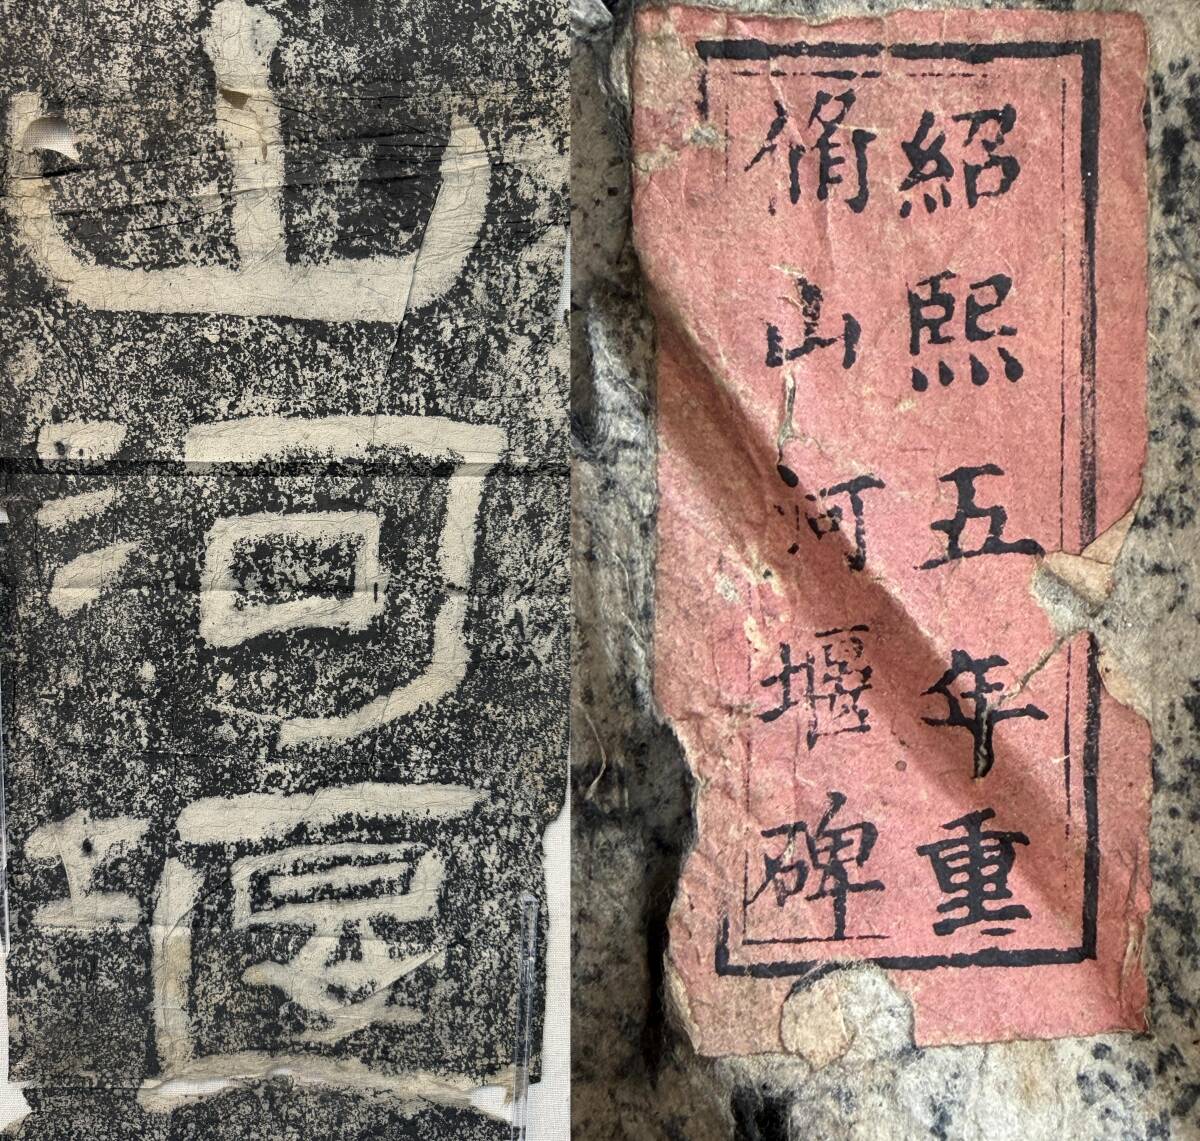 山河堰
紹熙五年重
脩山河堰碑